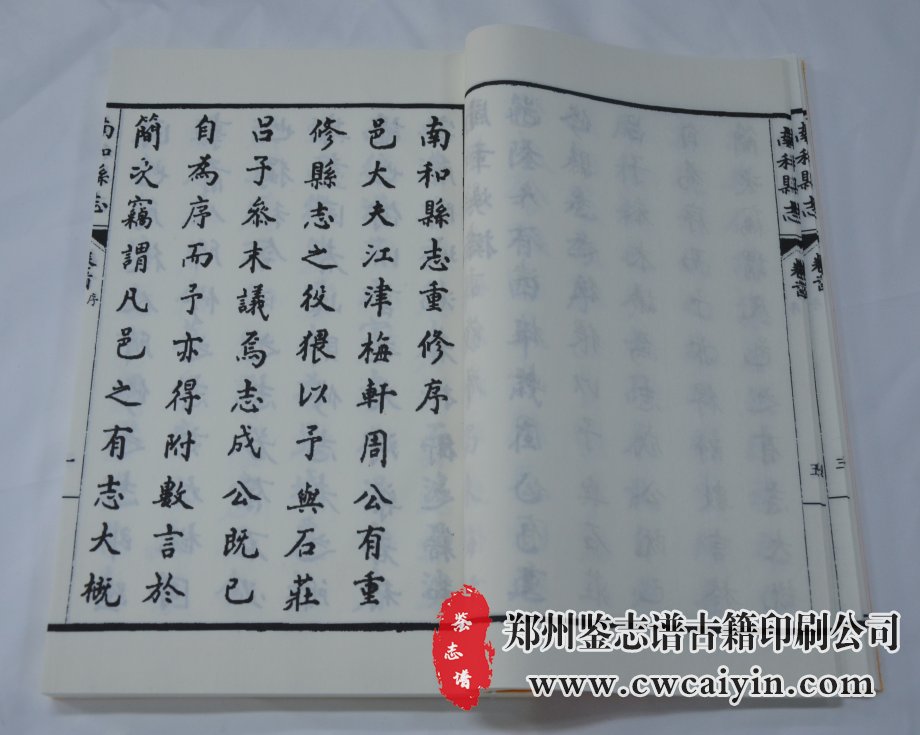 南和縣志重修序
邑大夫江津梅軒周公有重
修縣志之役猥以予與石莊
呂子參末議焉志成公既已
自為序而予亦得附數言於
簡次竊謂凡邑之有志大概
南和縣志
卷首
序
一
南和縣志
卷首
五
南和縣志
卷首
三
鉴志谱
郑州鉴志谱古籍印刷公司
www.cwcaiyin.com